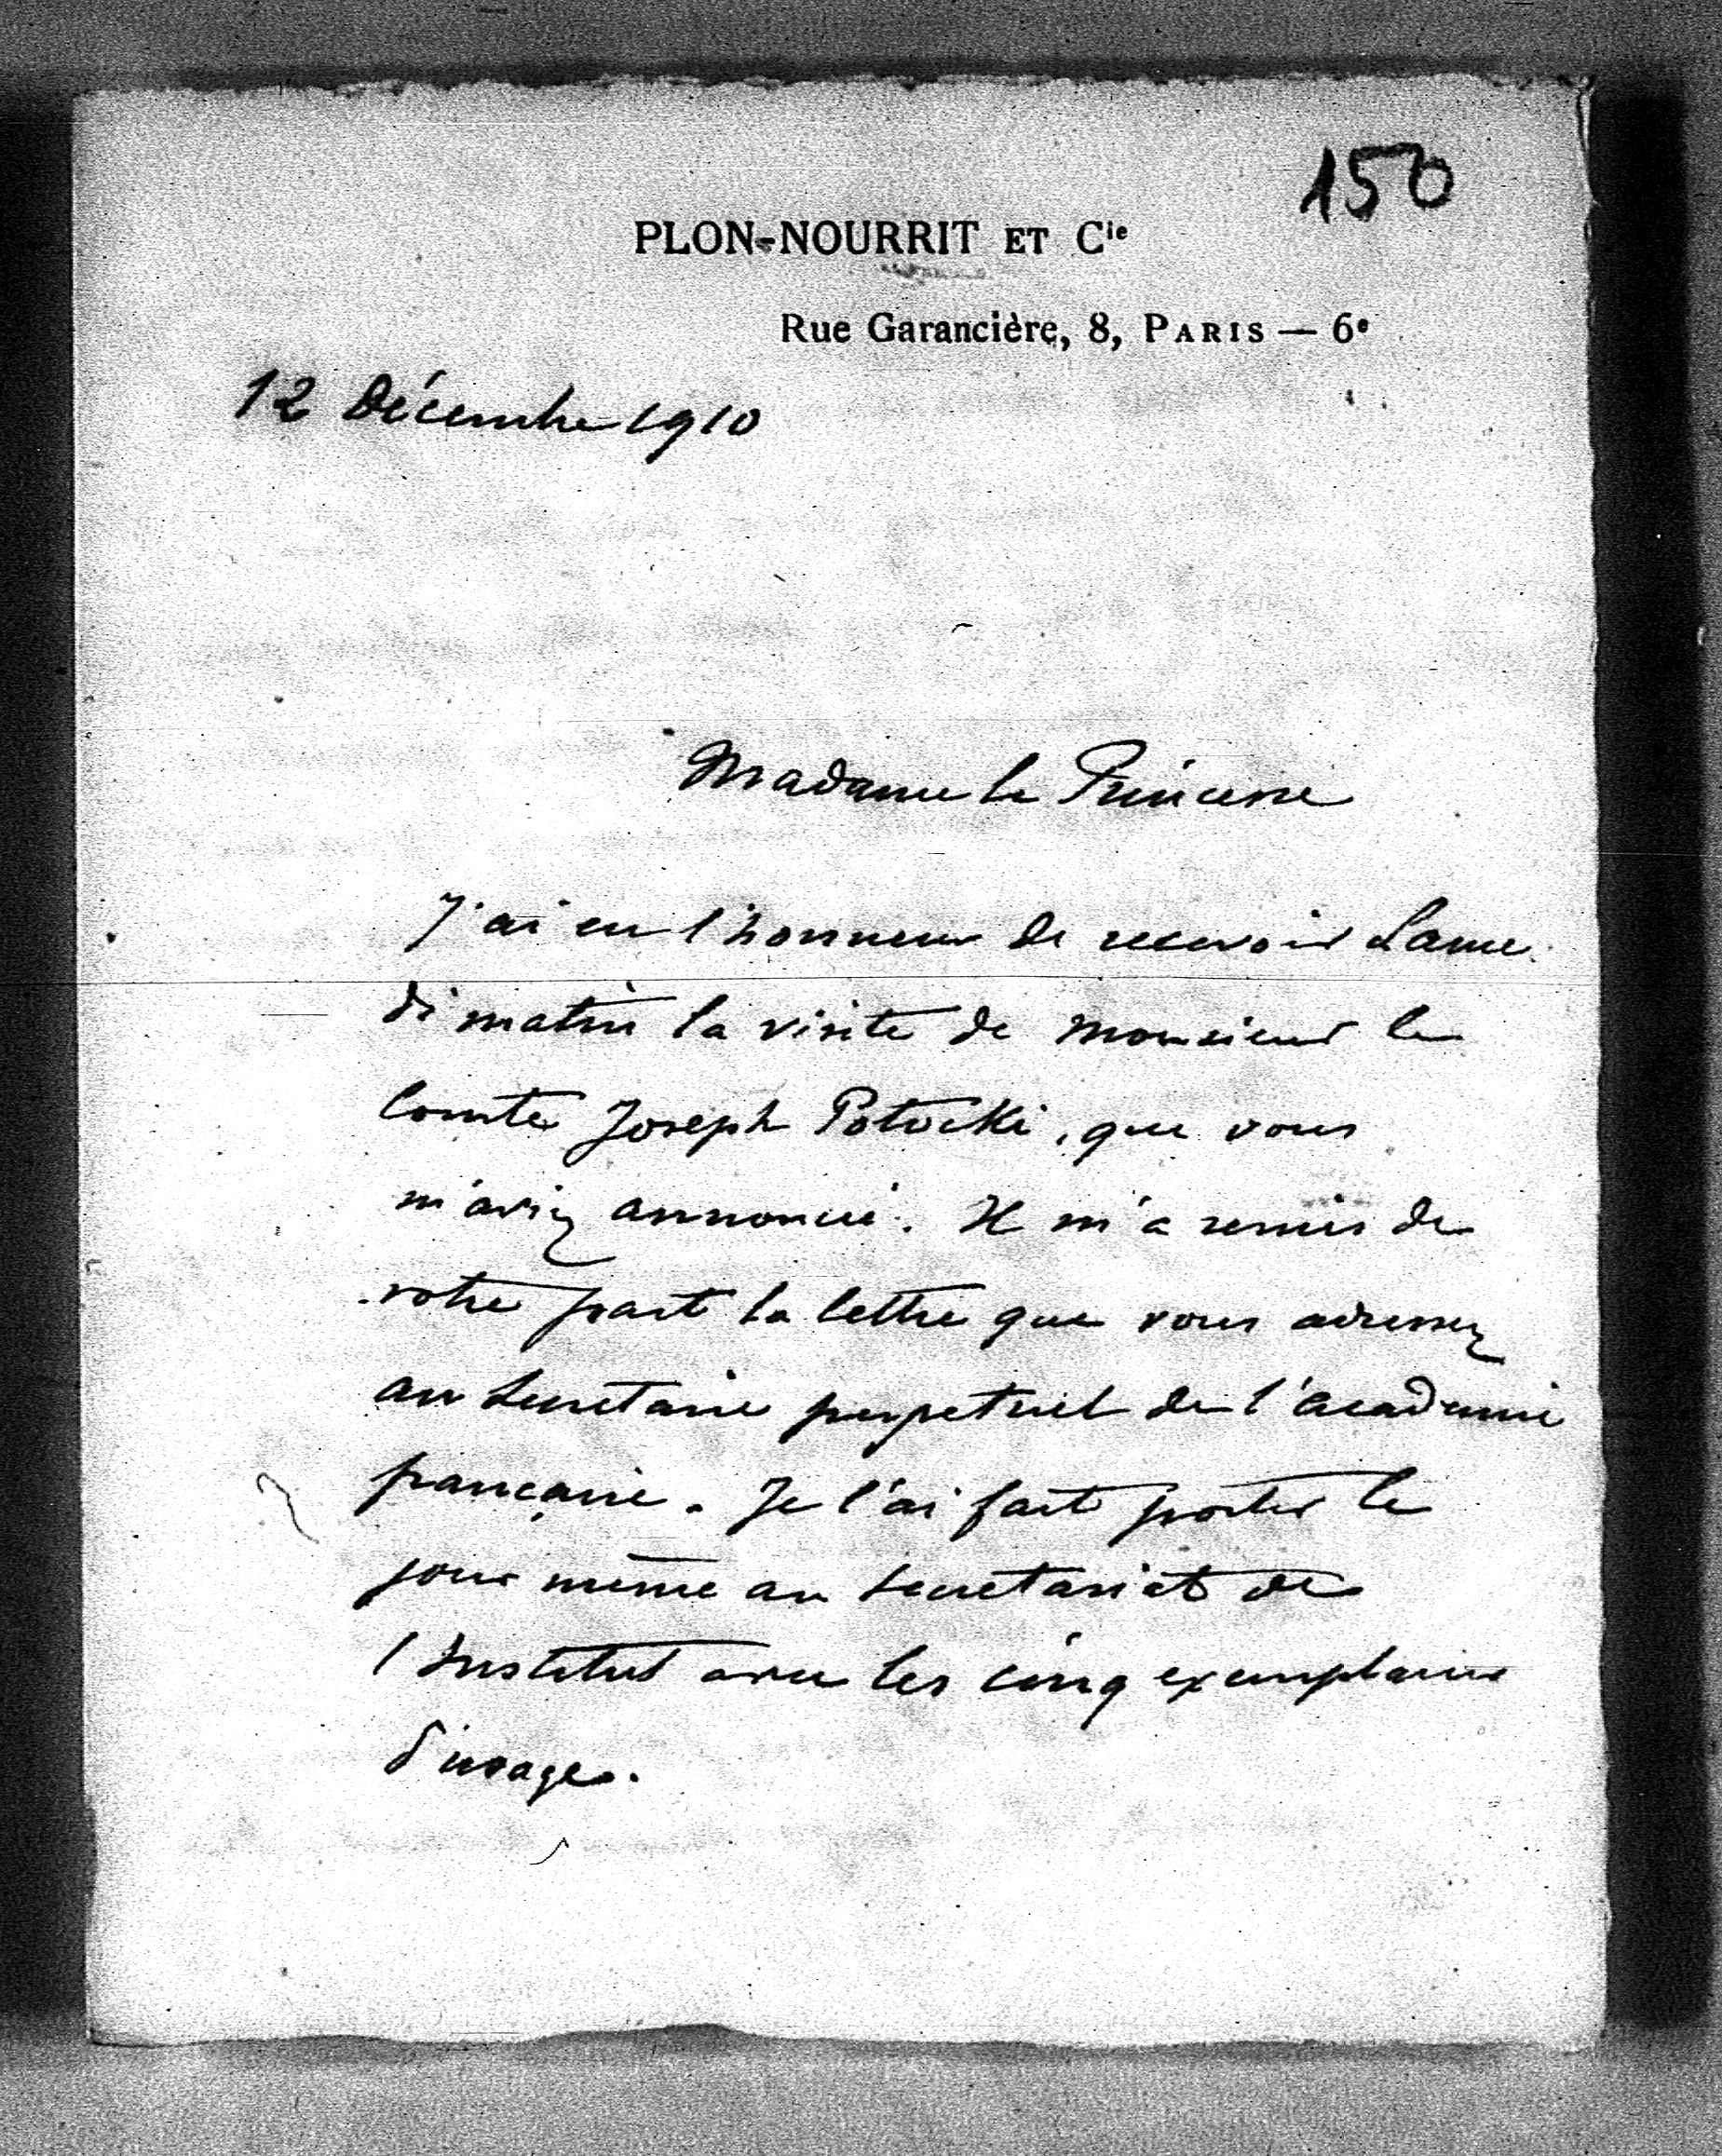 150
PLON-NOURRIT ET Cie
Rue Garancière, 8, PARIS — 6e
12 Décembre 1910
Madame la Princesse
J'ai eu l'honneur de recevoir Same
di matin la visite de Monsieur le
Comte Joseph Potocki, que vous
m'aviez annoncé. Il m'a remis de
votre part la lettre que vous adressez
au Secretaire perpetuel de l'Academie
française. Je l'ai fait porter le
jour même au Secretariat de
l'Institut avec les cinq exemplaires
d'usage.